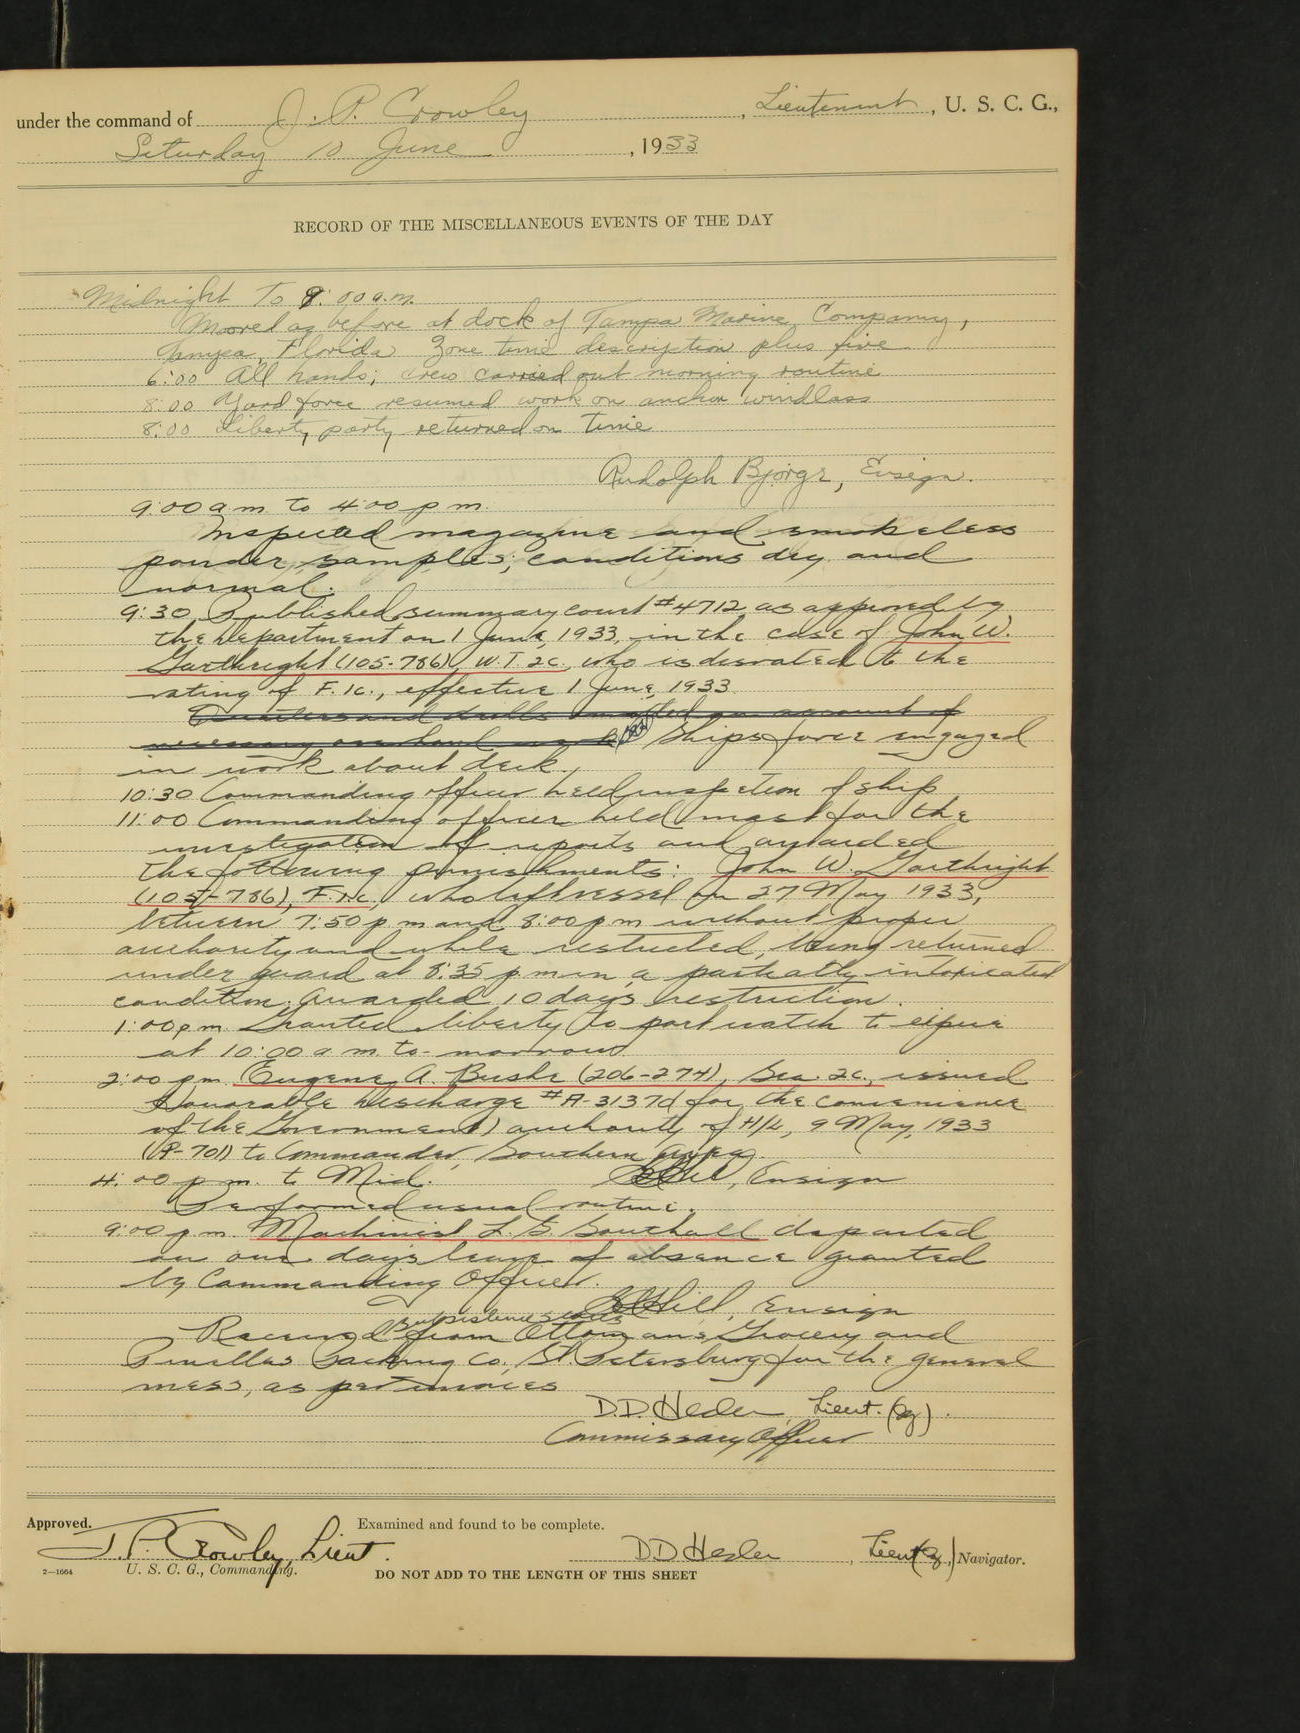 under the command of J. P. Crowley, Lieutenant, U. S. C. G.,
Saturday 10 June, 1933
RECORD OF THE MISCELLANEOUS EVENTS OF THE DAY
Midnight To 9:00 a.m.
Moored as before at dock of Tampa Marine Company,
Tampa, Florida Zone time description plus five
6:00 All hands; crew carried out morning routine
8:00 Yard force resumed work on anchor windlass
8:00 Liberty party returned on time
Rudolph Bjorge, Ensign.
9:00 a m to 4:00 p m.
Inspected magazine and smokeless
powder samples; conditions dry and
normal.
9:30 Published summary court #4712 as approved by
the Department on 1 June, 1933, in the case of John W.
Garthright (105-786), W.T. 2c. who is disrated to the
rating of F. 1c., effective 1 June, 1933
Quarters and drills omitted on account of
necessary overhaul work Ships force engaged
in work about deck.
10:30 Commanding officer held inspection of ship
11:00 Commanding officer held mast for the
investigation of reports and awarded
the following punishments: John W. Garthright
(105-786), F. 1c. who left vessel on 27 May 1933,
between 7:50 p m and 8:00 p m without proper
authority and while restricted, being returned
under guard at 8:35 p. m. in a partially intoxicated
condition. Awarded 10 days restriction.
1:00 p m. Granted liberty to port watch to expire
at 10:00 a m. to-morrow
2:00 p m. Eugene A. Bushe (206-274), Sea. 2c., issued
Honorable Discharge #A-31370 for the convenience
of the Government) authority of H/L, 9 May, 1933
(P-701) to Commander, Southern Area.
4:00 p m. to Mid. Hill, Ensign
Performed usual routine.
9:00 p m. Machinist L. G. Southall departed
on one day's leave of absence granted
by Commanding Officer.
Hill, Ensign
subsistence stores
Received from Ottomans Grocery and
Pinellas Packing Co., St. Petersburg for the general
mess, as per invoices
D. D. Hesler, Lieut. (jg).
Commissary Officer
Approved. Examined and found to be complete.
J. P. Crowley, Lieut. D D Hesler, Lieut (jg.) Navigator.
2—1664 U. S. C. G., Commanding. DO NOT ADD TO THE LENGTH OF THIS SHEET